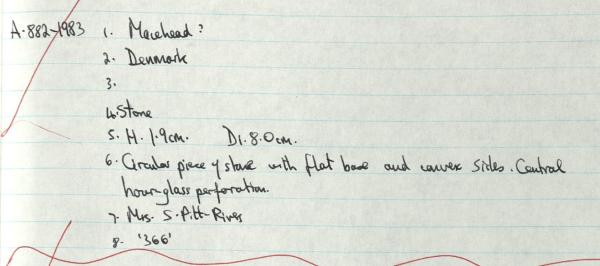 A.882-1983 1. Macehead?
2. Denmark
3.
4. Stone
5. H. 1.9cm. Di. 8.0cm.
6. Circular piece of stone with flat base and convex sides. Central
hourglass perforation.
7. Mrs. S. Pitt-Rivers
8. '366'